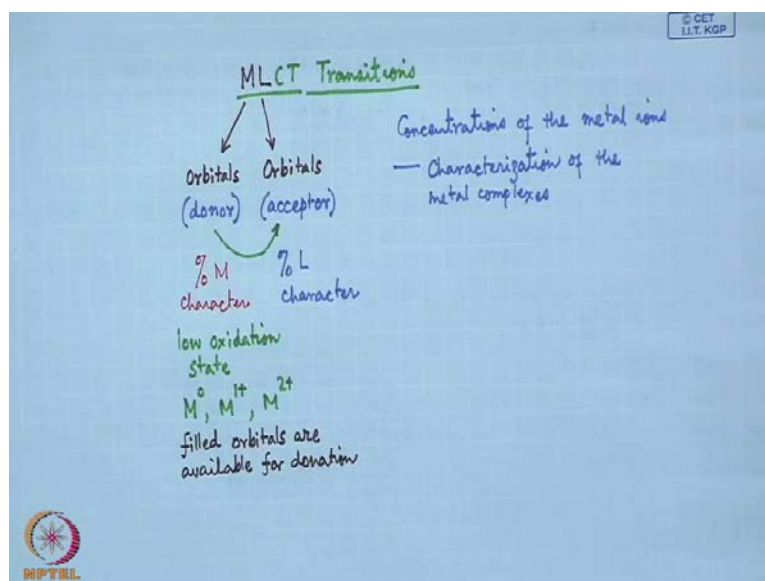 © CET
I.I.T. KGP
MLCT Transitions
Orbitals Orbitals
(donor) (acceptor)
% M % L
character character
low oxidation
state
M⁰, M¹⁺, M²⁺
filled orbitals are
available for donation
Concentrations of the metal ions
— Characterization of the
metal complexes
NPTEL